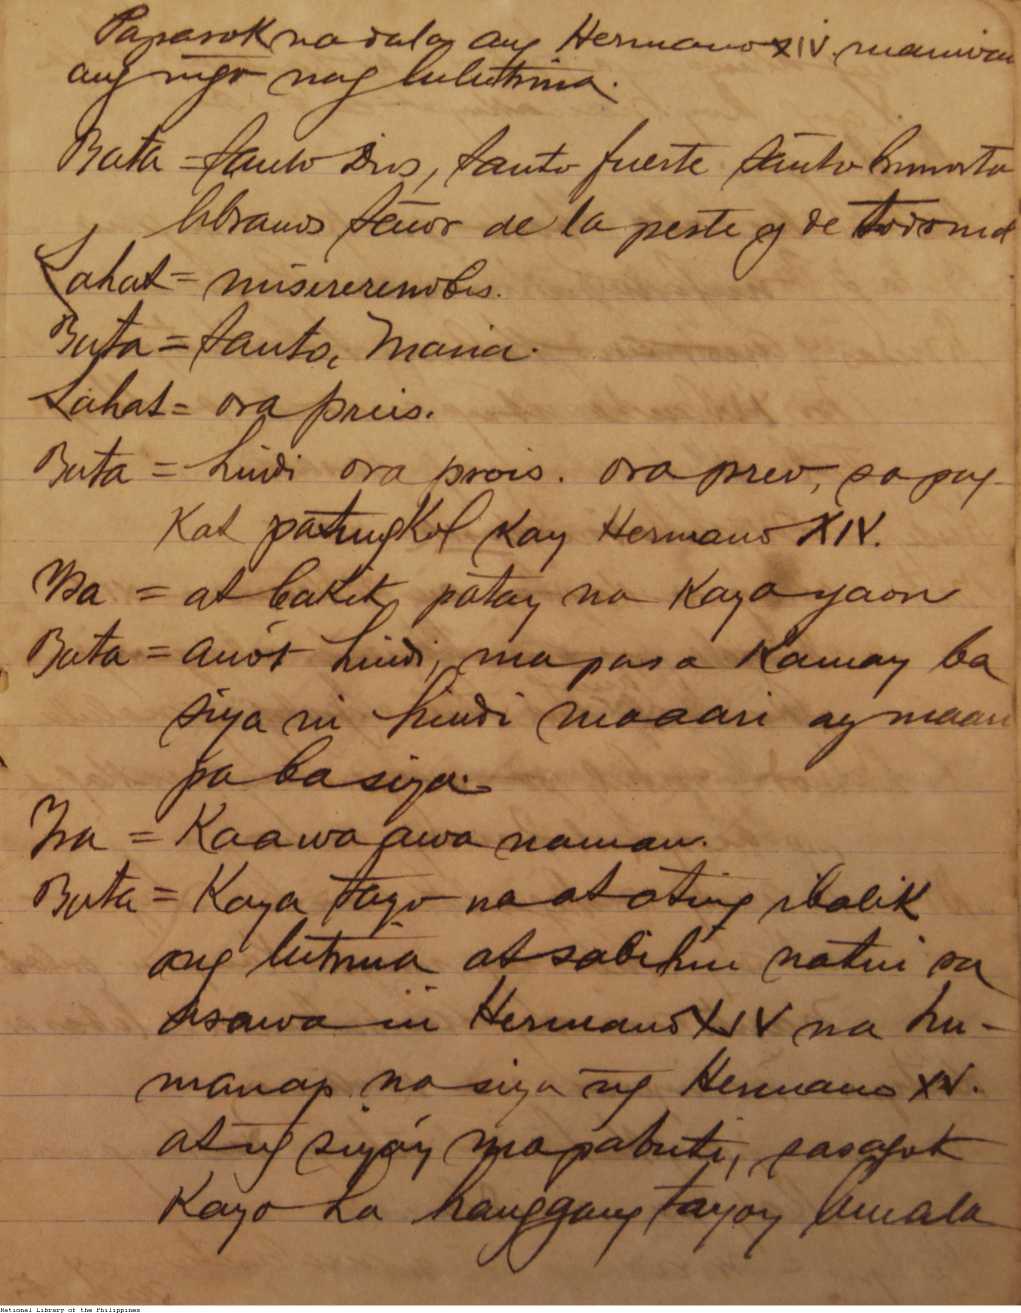 Papasok na dala ang Hermano XIV. maiiwan
ang mga nag lulutrina.
Bata = Santo Dios, Santo fuerte Santo Inmorta
libranos Señor de la peste y de todo mal
Lahat = misererenobis.
Bata = Santa, Maria.
Lahat = ora preis.
Bata = hindi ora prois. ora preo, sapag-
kat patungkol kay Hermano XIV.
Isa = at bakit, patay na kaya yaon
Bata = anót hindi, mapasa kamay ba
siya ni hindi maaari ay maari
pa ba siya.
Isa = Kaawaawa naman.
Bata = Kaya tayo na at ating ibalik
ang lutrina at sabihin natin sa
asawa ni Hermano XIV na hu-
manap na siya ng Hermano XV.
at ng siyáy mapabuti, sasagot
kayo ha hanggang tayoy lumala
National Library of the Philippines